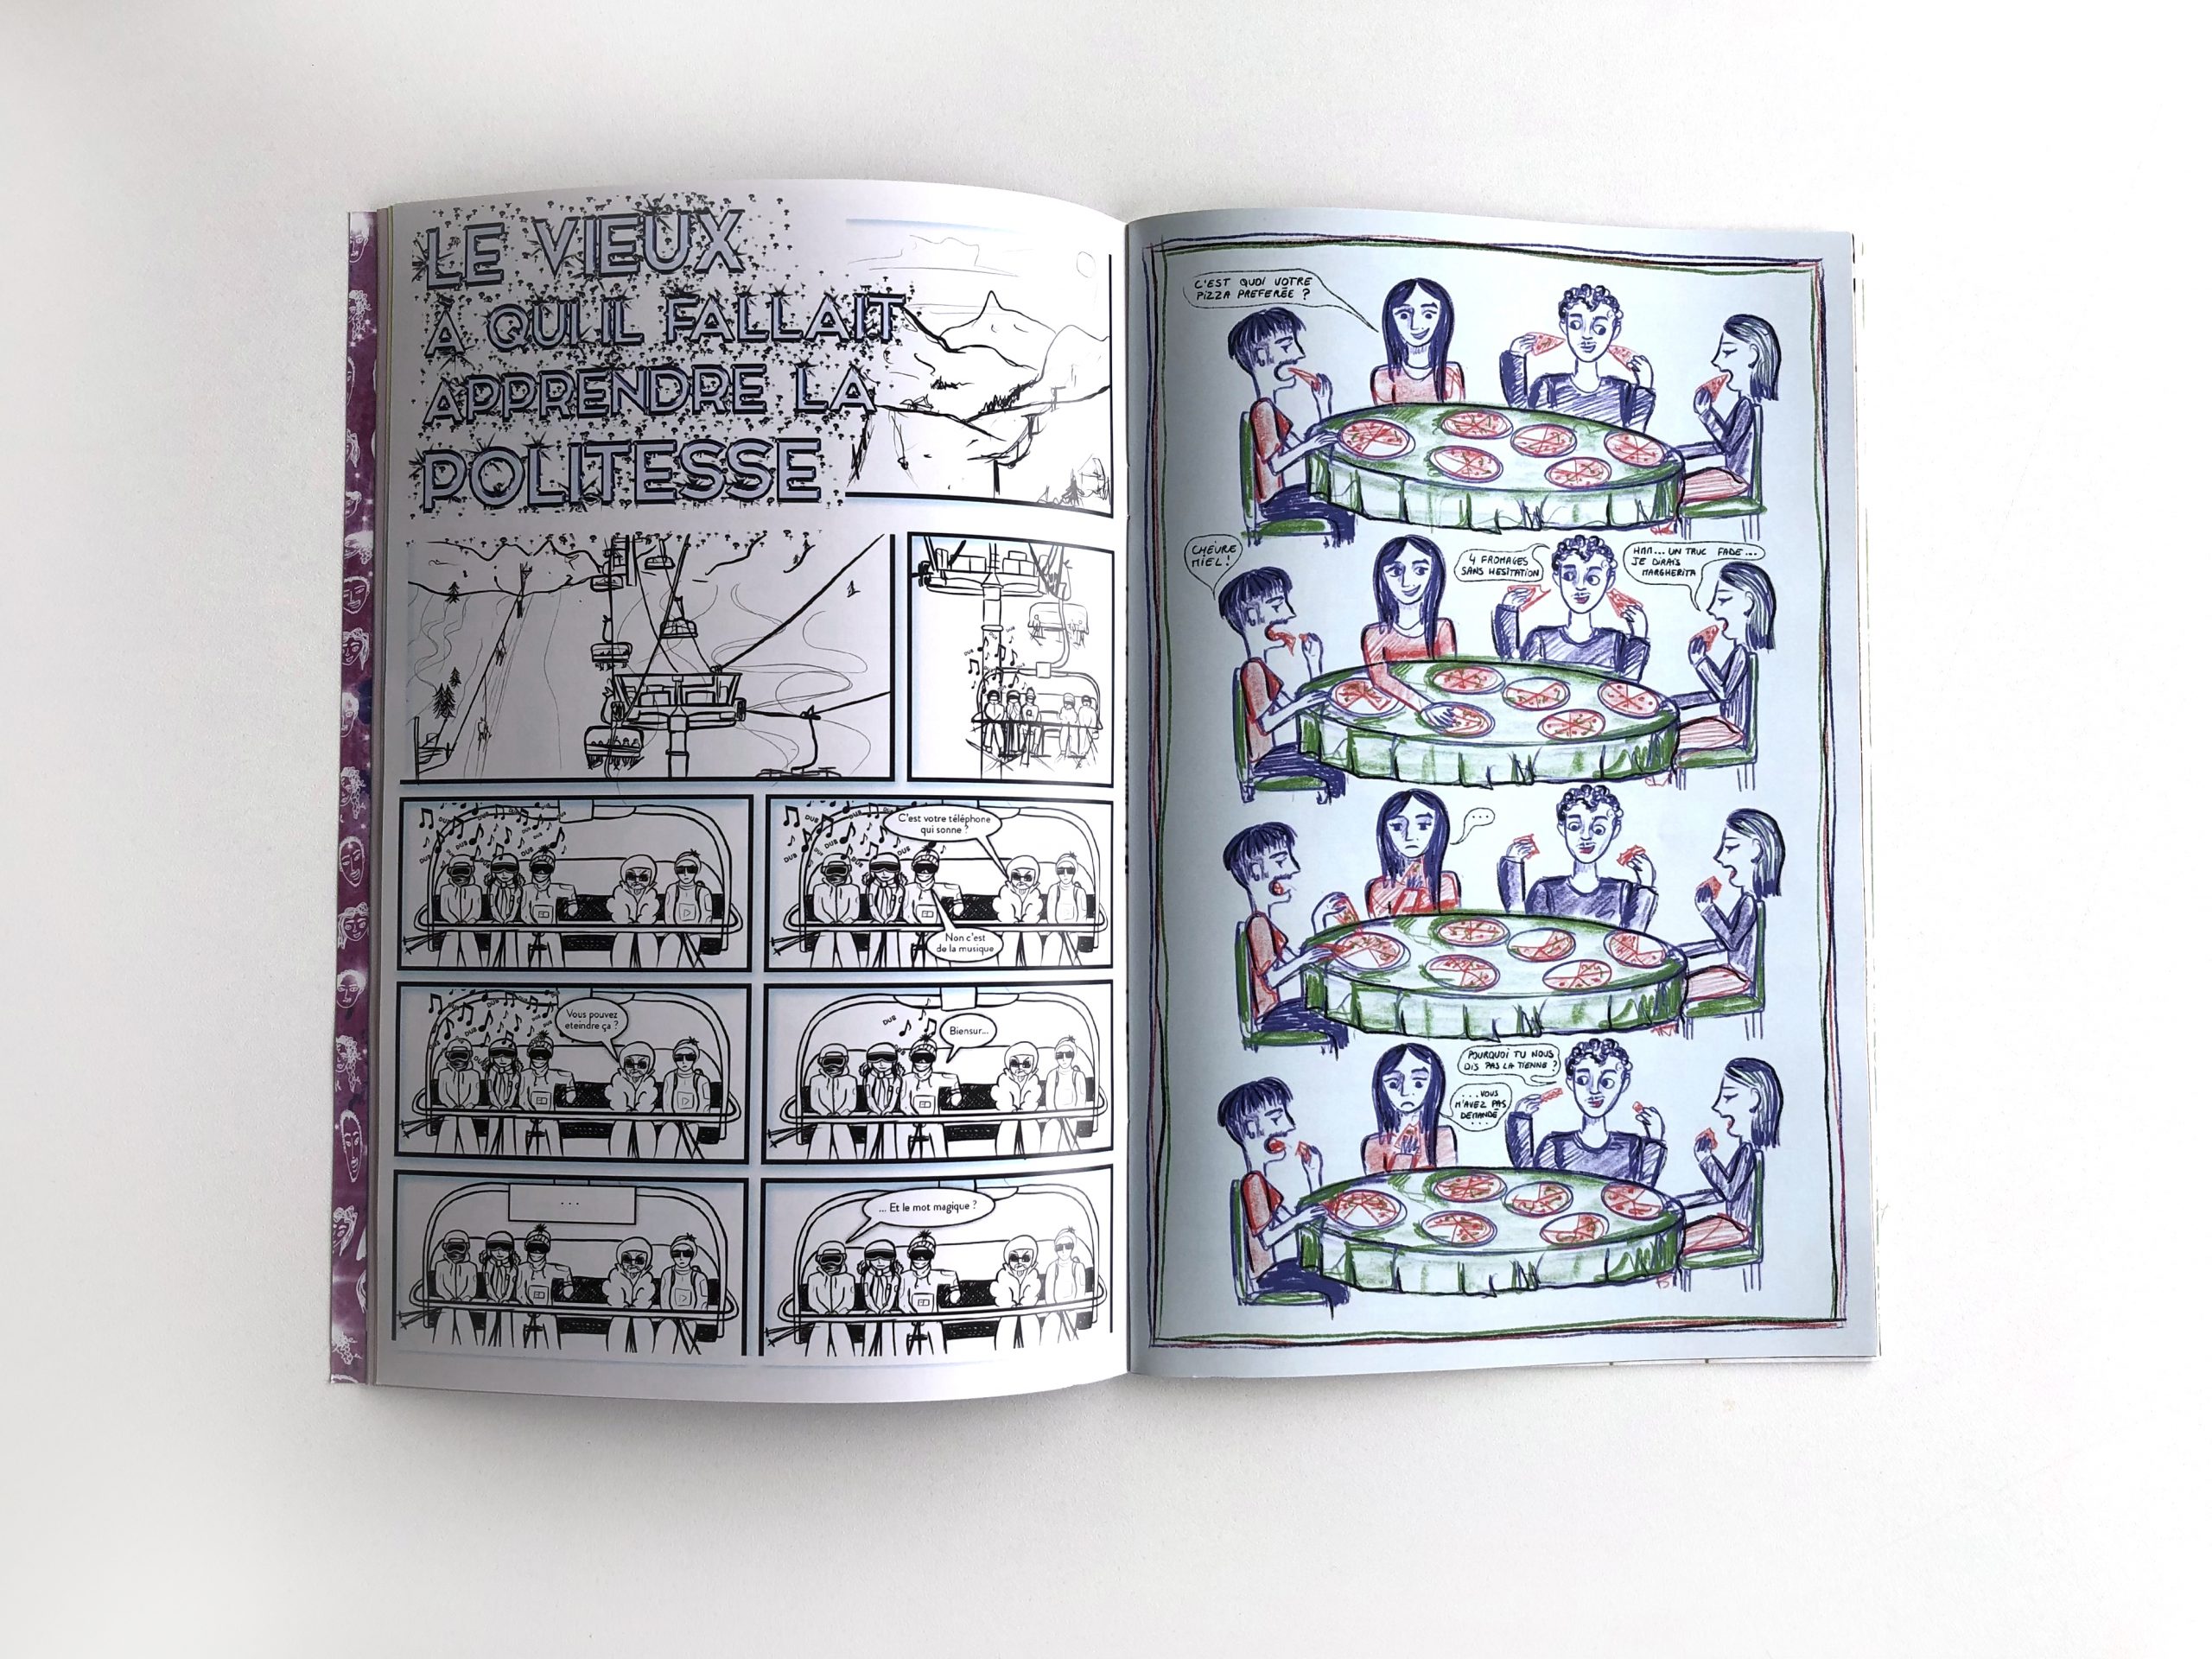 LE VIEUX
À QUI IL FALLAIT
APPRENDRE LA
POLITESSE
C'est votre téléphone
qui sonne ?
Non c'est
de la musique
Vous pouvez
eteindre ça ?
DUB
Biensur...
...
... Et le mot magique ?
C'EST QUOI VOTRE
PIZZA PREFERÉE ?
CHÈVRE
MIEL !
4 FROMAGES
SANS HESITATION
HMM... UN TRUC FADE...
JE DIRAIS
MARGHERITA
...
POURQUOI TU NOUS
DIS PAS LA TIENNE ?
...VOUS
M'AVEZ PAS
DEMANDÉ
...